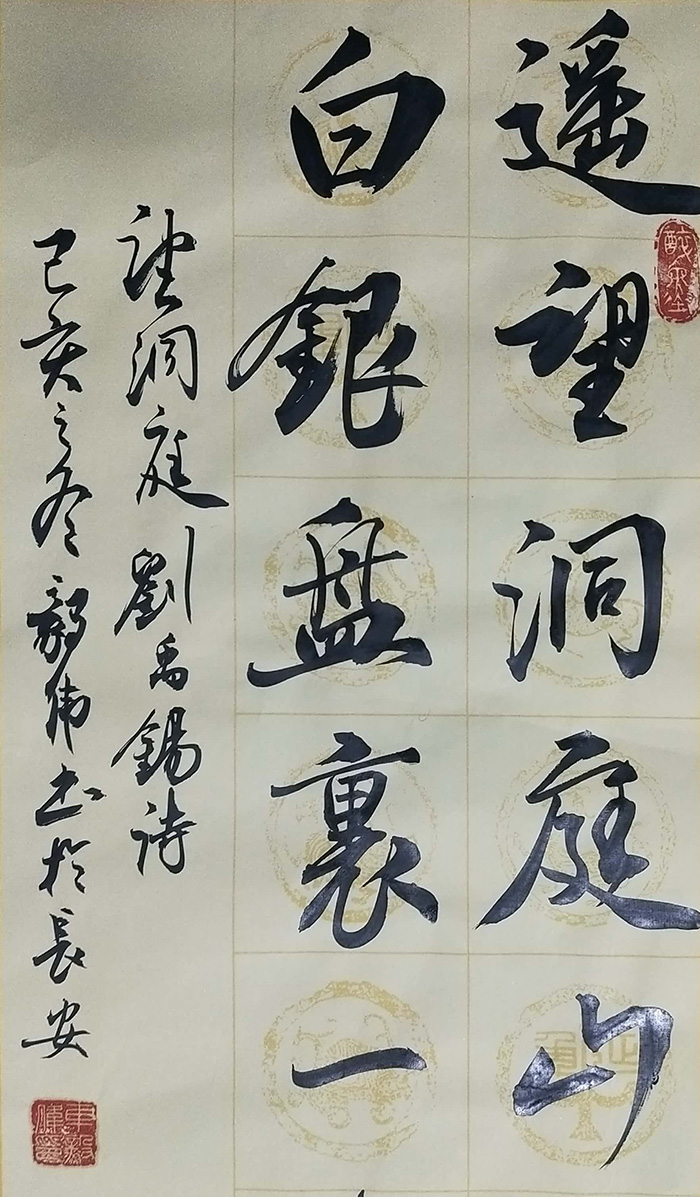 遥望洞庭山
白銀盘裏一
望洞庭劉禹錫詩
己亥之冬毅伟书於長安